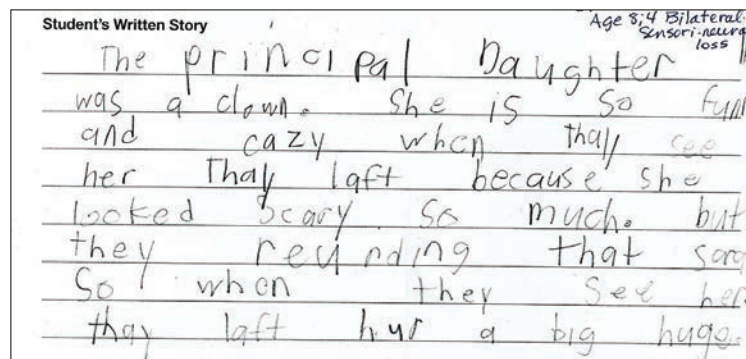 Student's Written Story
Age 8;4 Bilateral
Sensori-neura
loss
The principal Daughter
was a clown. She is so fun
and cazy when thay see
her Thay laft because she
looked scary so much. but
they reunding that sorq
So when they see her
thay laft hur a big huge.